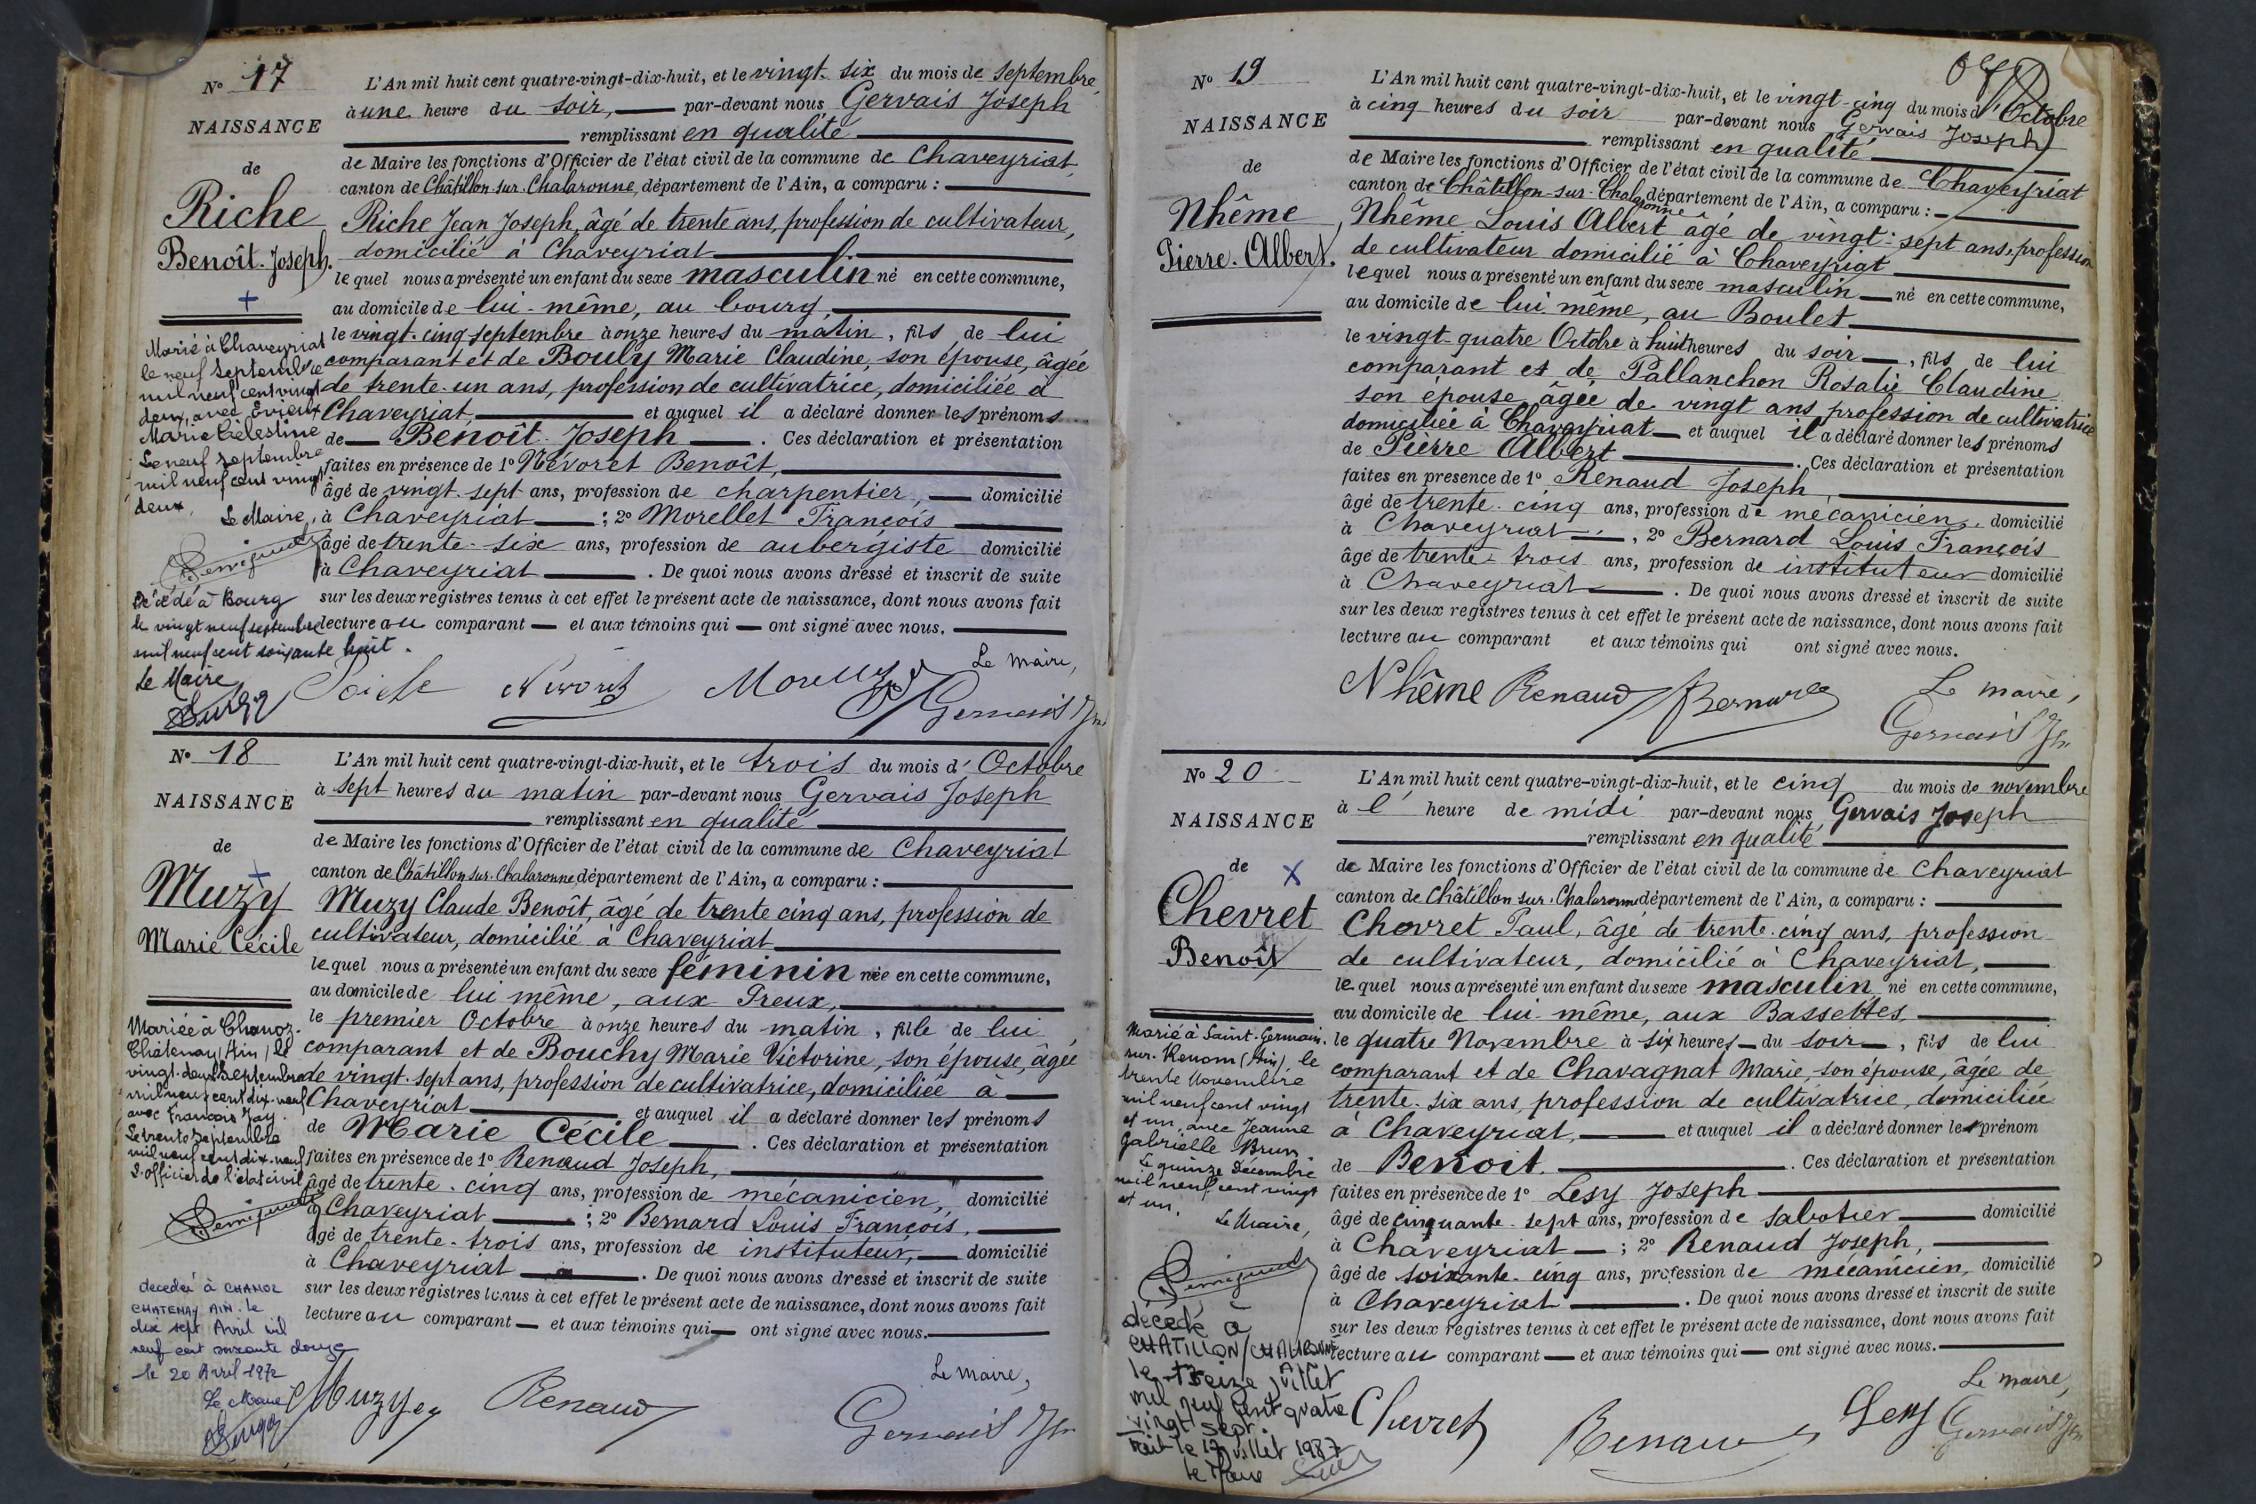 Nº 17
NAISSANCE
de
Riche
Benoît-Joseph.
Marié à Chaveyriat
le neuf septembre
mil neuf cent vingt
deux, avec Evieux
Marie Célestine
Le neuf septembre
mil neuf cent vingt
deux.
Le Maire,
Décédé à Bourg
le vingt neuf septembre
mil neuf cent soixante huit.
Le Maire
L'An mil huit cent quatre-vingt-dix-huit, et le vingt-six du mois de septembre,
à une heure du soir, par-devant nous Gervais Joseph
remplissant en qualité
de Maire les fonctions d'Officier de l'état civil de la commune de Chaveyriat,
canton de Châtillon-sur-Chalaronne, département de l'Ain, a comparu :
Riche Jean Joseph, âgé de trente ans, profession de cultivateur,
domicilié à Chaveyriat
lequel nous a présenté un enfant du sexe masculin né en cette commune,
au domicile de lui-même, au bourg,
le vingt-cinq septembre à onze heures du matin, fils de lui
comparant et de Bouly Marie Claudine, son épouse, âgée
de trente-un ans, profession de cultivatrice, domiciliée à
Chaveyriat et auquel il a déclaré donner les prénoms
de Benoît-Joseph. Ces déclaration et présentation
faites en présence de 1º Névoret Benoît,
âgé de vingt-sept ans, profession de charpentier, domicilié
à Chaveyriat ; 2º Morellet François
âgé de trente-six ans, profession de aubergiste domicilié
à Chaveyriat. De quoi nous avons dressé et inscrit de suite
sur les deux registres tenus à cet effet le présent acte de naissance, dont nous avons fait
lecture au comparant et aux témoins qui ont signé avec nous.
Le Maire,
Riche Névoret Morellet Gervais Jph
Nº 18
NAISSANCE
de
Muzy
Marie Cécile
Mariée à Chanoz-
Châtenay (Ain) le
vingt-deux Septembre
mil neuf cent dix-neuf
avec François Jay.
Le trente Septembre
mil neuf cent dix-neuf
L'officier de l'état civil
decedée à CHANOZ
CHATENAY AIN. le
dix sept Avril mil
neuf cent soixante douze
le 20 Avril 1972
Le Maire
L'An mil huit cent quatre-vingt-dix-huit, et le trois du mois d'Octobre
à sept heures du matin par-devant nous Gervais Joseph
remplissant en qualité
de Maire les fonctions d'Officier de l'état civil de la commune de Chaveyriat
canton de Châtillon-sur-Chalaronne, département de l'Ain, a comparu :
Muzy Claude Benoît, âgé de trente cinq ans, profession de
cultivateur, domicilié à Chaveyriat
lequel nous a présenté un enfant du sexe féminin née en cette commune,
au domicile de lui même, aux Preux,
le premier Octobre à onze heures du matin, fille de lui
comparant et de Bouchy Marie Victorine, son épouse, âgée
de vingt-sept ans, profession de cultivatrice, domiciliée à
Chaveyriat et auquel il a déclaré donner les prénoms
de Marie Cécile. Ces déclaration et présentation
faites en présence de 1º Renaud Joseph,
âgé de trente-cinq ans, profession de mécanicien, domicilié
à Chaveyriat ; 2º Bernard Louis François,
âgé de trente-trois ans, profession de instituteur, domicilié
à Chaveyriat. De quoi nous avons dressé et inscrit de suite
sur les deux registres tenus à cet effet le présent acte de naissance, dont nous avons fait
lecture au comparant et aux témoins qui ont signé avec nous.
Le Maire,
Muzy Renaud Gervais Jph
Nº 19
NAISSANCE
de
Nhême,
Pierre-Albert.
L'An mil huit cent quatre-vingt-dix-huit, et le vingt-cinq du mois d'Octobre
à cinq heures du soir par-devant nous Gervais Joseph
remplissant en qualité
de Maire les fonctions d'Officier de l'état civil de la commune de Chaveyriat
canton de Châtillon-sur-Chalaronne département de l'Ain, a comparu :
Nhême Louis Albert âgé de vingt-sept ans, profession
de cultivateur domicilié à Chaveyriat
lequel nous a présenté un enfant du sexe masculin né en cette commune,
au domicile de lui même, au Boulet
le vingt-quatre Octobre à huit heures du soir, fils de lui
comparant et de Pallanchon Rosalie Claudine
son épouse âgée de vingt ans profession de cultivatrice
domiciliée à Chaveyriat et auquel il a déclaré donner les prénoms
de Pierre Albert. Ces déclaration et présentation
faites en présence de 1º Renaud Joseph,
âgé de trente-cinq ans, profession de mécanicien, domicilié
à Chaveyriat, 2º Bernard Louis François
âgé de trente-trois ans, profession de instituteur domicilié
à Chaveyriat. De quoi nous avons dressé et inscrit de suite
sur les deux registres tenus à cet effet le présent acte de naissance, dont nous avons fait
lecture au comparant et aux témoins qui ont signé avec nous.
Le Maire,
Nhême Renaud Bernard Gervais Jph
Nº 20
NAISSANCE
de
Chevret
Benoît
Marié à Saint-Germain-
sur-Renom (Ain) le
trente Novembre
mil neuf cent vingt
et un, avec Jeanne
Gabrielle Brun.
Le quinze Décembre
mil neuf cent vingt
et un.
Le Maire,
décédé à
CHATILLON/CHALARONNE
le treize Juillet
mil neuf cent quatre
vingt sept.
Fait le 17 Juillet 1987
Le Maire
L'An mil huit cent quatre-vingt-dix-huit, et le cinq du mois de novembre
à l'heure de midi par-devant nous Gervais Joseph
remplissant en qualité
de Maire les fonctions d'Officier de l'état civil de la commune de Chaveyriat
canton de Châtillon-sur-Chalaronne département de l'Ain, a comparu :
Chevret Paul, âgé de trente-cinq ans, profession
de cultivateur, domicilié à Chaveyriat,
lequel nous a présenté un enfant du sexe masculin né en cette commune,
au domicile de lui-même, aux Bassettes,
le quatre Novembre à six heures du soir, fils de lui
comparant et de Chavagnat Marie son épouse, âgée de
trente-six ans, profession de cultivatrice, domiciliée
à Chaveyriat, et auquel il a déclaré donner le prénom
de Benoit. Ces déclaration et présentation
faites en présence de 1º Lesy Joseph
âgé de cinquante-sept ans, profession de sabotier domicilié
à Chaveyriat ; 2º Renaud Joseph,
âgé de soixante-cinq ans, profession de mécanicien, domicilié
à Chaveyriat. De quoi nous avons dressé et inscrit de suite
sur les deux registres tenus à cet effet le présent acte de naissance, dont nous avons fait
lecture au comparant et aux témoins qui ont signé avec nous.
Le Maire,
Chevret Renaud Lesy Gervais Jph